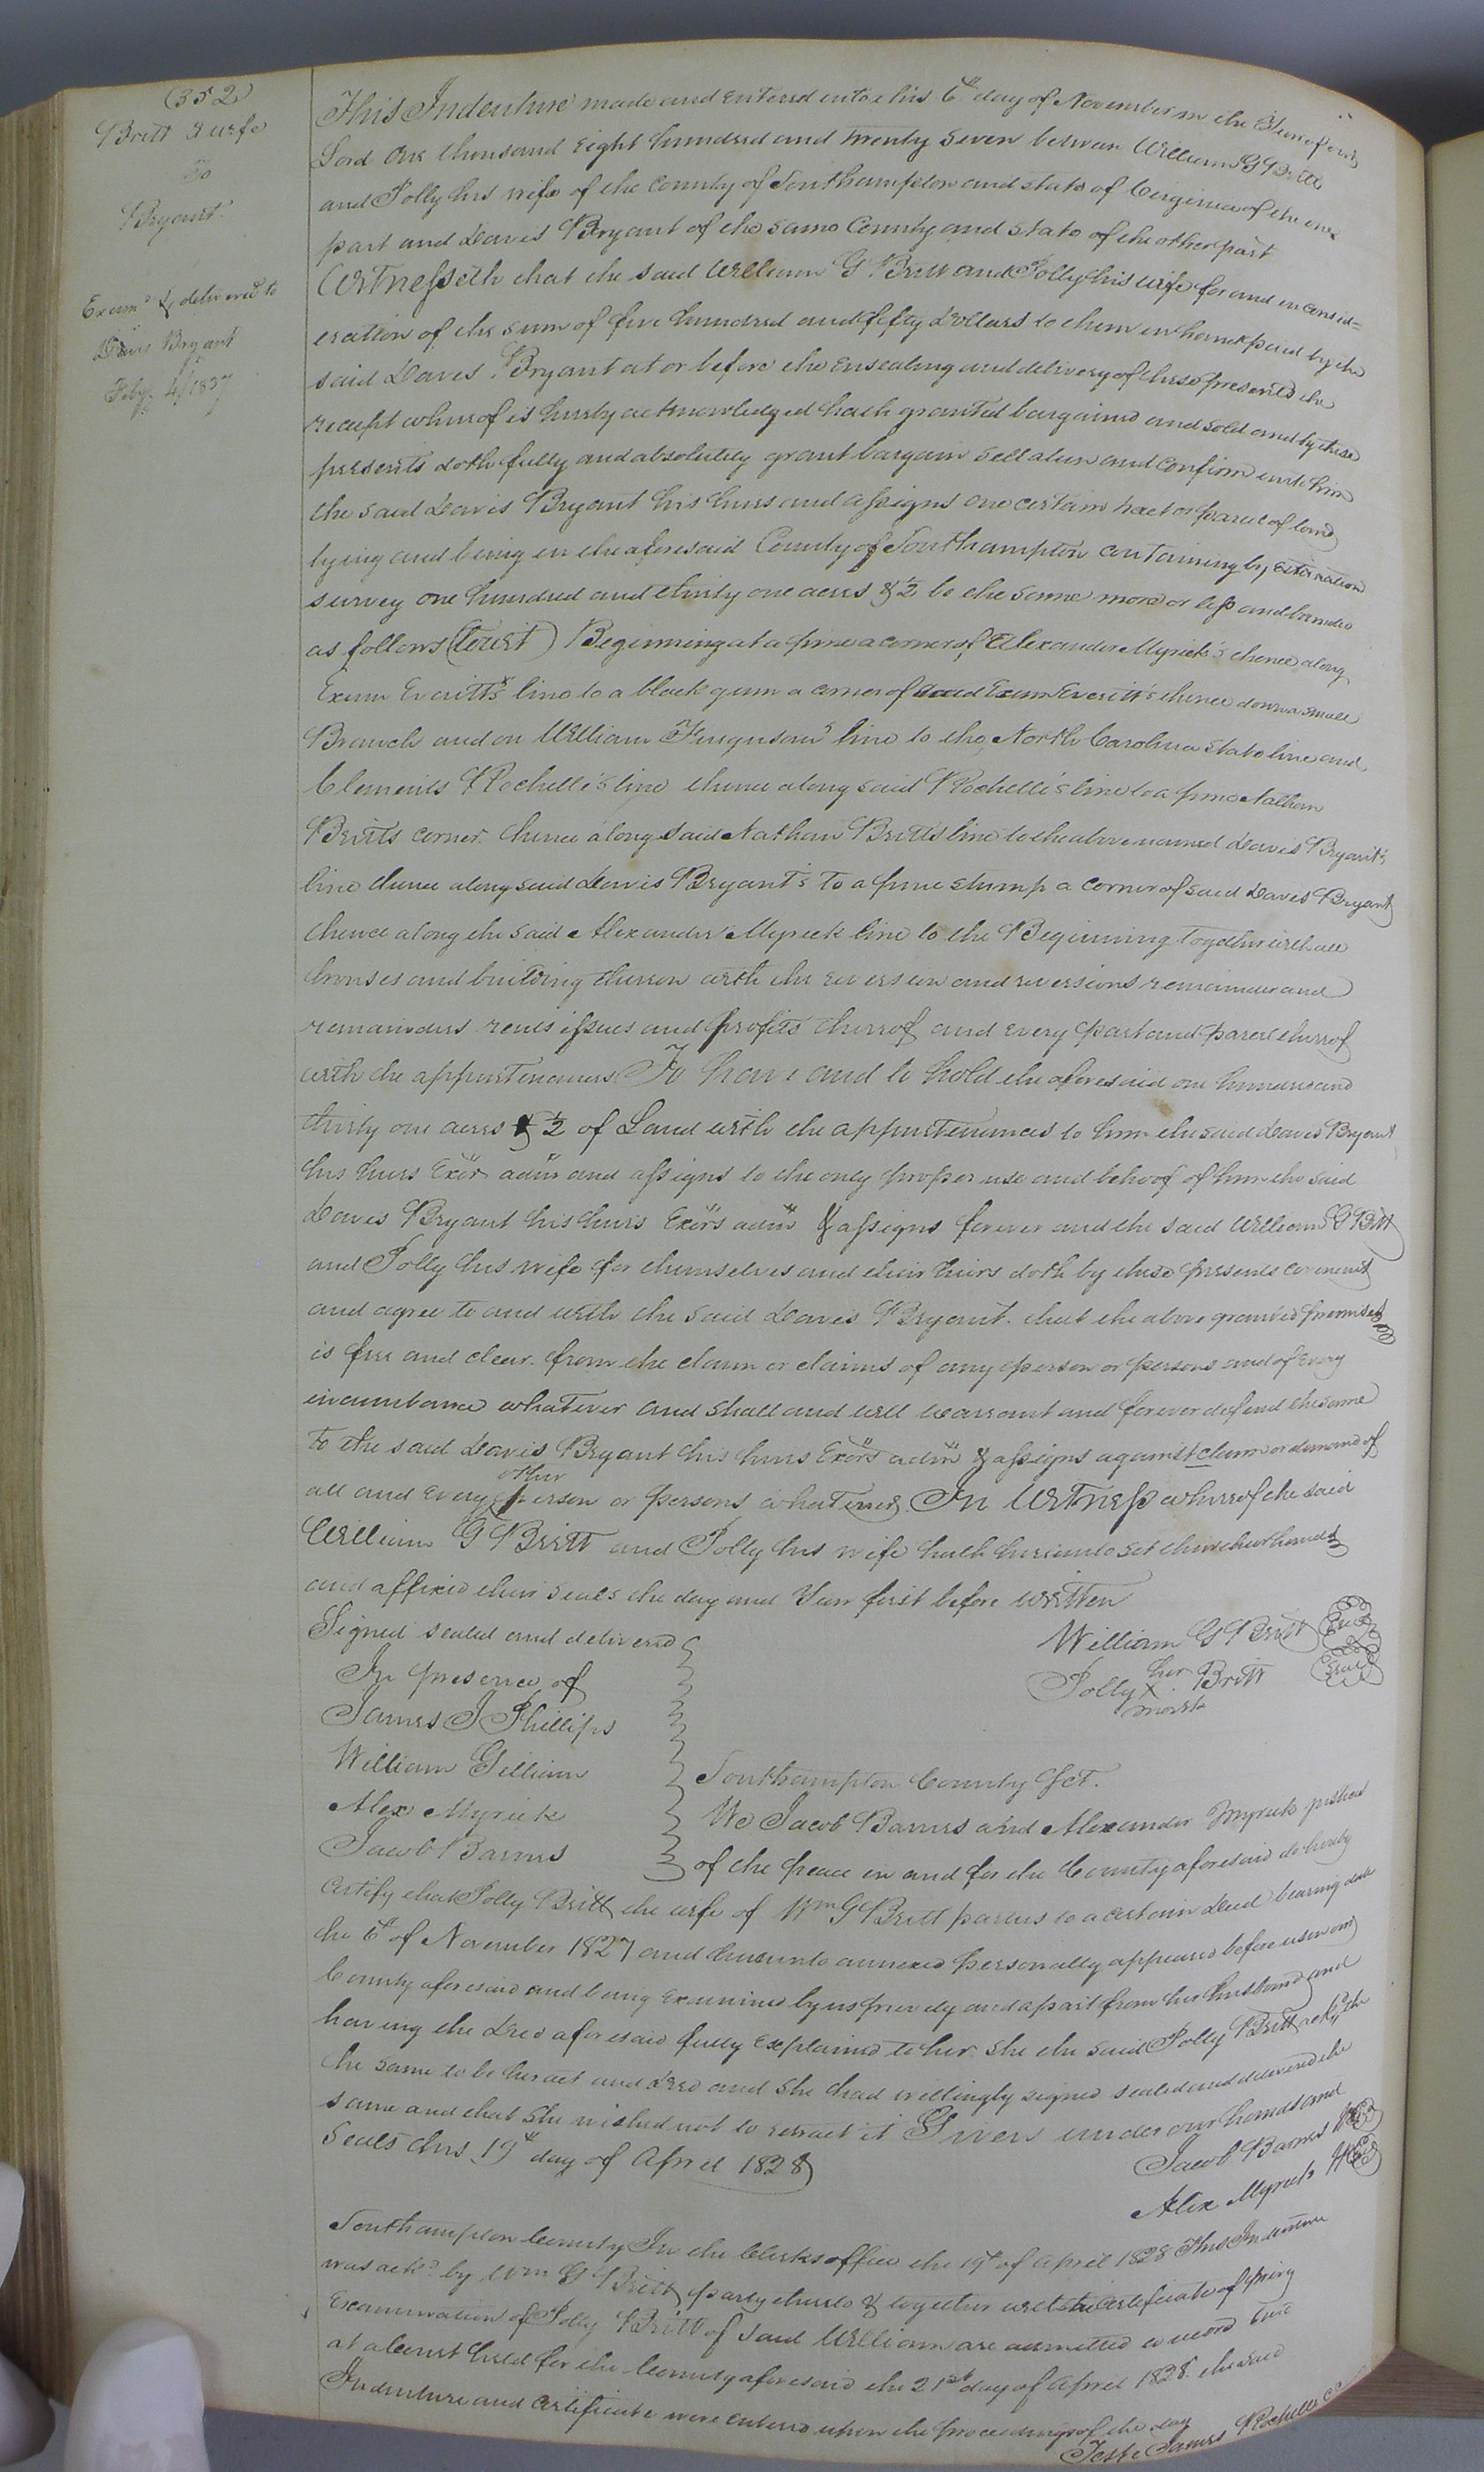 (352)
Britt & wife
To
Bryant
Examd & delivered to
Davis Bryant
Feby 4/1837
This Indenture made and entered into this 6th day of November in the Year of our
Lord One thousand eight hundred and twenty seven between William G Britt
and Polly his wife of the County of Southampton and state of Virginia of the one
part and Davis Bryant of the same County and State of the other part
Witnesseth that the said William G Britt and Polly his wife for and in consid=
eration of the sum of five hundred and fifty Dollars to them in hand paid by the
said Davis Bryant at or before the ensealing and delivery of these presents the
receipt whereof is hereby acknowledged hath granted bargained and sold and by these
presents doth fully and absolutely grant bargain sell alien and confirm unto him
the said Davis Bryant his heirs and assigns one certain tract or parcel of land
lying and being in the aforesaid County of Southampton containing by estimation
survey one hundred and thirty one acres & ½ be the same more or less and bounded
as follows (towit) Beginning at a pine a corner of Alexander Myrick's thence along
Exum Everitt's line to a black gum a corner of said Exum Everitt's thence down a small
Branch and on William Ferguson's line to the North Carolina State line and
Clements Rochelle's line thence along said Rochelle's line to a pine Nathan
Britts corner. thence along said Nathan Britts line to the above named Davis Bryant's
line thence along said Davis Bryant's to a pine stump a corner of said Davis Bryant
thence along the said Alexander Myrick line to the Beginning together with all
houses and building thereon with the reversion and reversions remainder and
remainders rents issues and profits thereof and every part and parcel thereof
with the appurtenances To have and to hold the aforesaid one hundred and
thirty one acres & ½ of Land with the appurtenances to him the said Davis Bryant
his heirs Exors adms and assigns to the only proper use and behoof of him the said
Davis Bryant his heirs Exors adms & assigns forever and the said William G Britt
and Polly his wife for themselves and their heirs doth by these presents covenant
and agree to and with the said Davis Bryant. that the above granted premises
is free and clear. from the claim or claims of any person or persons and of every
incumbrance whatever and shall and will warrant and forever defend the same
to the said Davis Bryant his heirs Exors adms & assigns against claim or demand of
all and every other person or persons whatever. In Witness whereof the said
William G Britt and Polly his wife hath hereunto set their hands
and affixed their seals the day and Year first before written
Signed sealed and delivered
In presence of
James J Phillips
William Gilliam
Alex Myrick
Jacob Barnes
William G Britt Seal
Polly her X mark Britt Seal
Southampton County Sct.
We Jacob Barnes and Alexander Myrick justices
of the peace in and for the County aforesaid do hereby
Certify that Polly Britt the wife of Wm G Britt parties to a certain Deed bearing date
the 6th of November 1827 and hereunto annexed personally appeared before us in our
County aforesaid and being examined by us privily and apart from her husband and
having the Deed aforesaid fully explained to her. She the said Polly Britt ackd the
the same to be her act and deed and she had willingly signed sealed and delivered the
same and that she wished not to retract it Given under our hands and
Seals this 19th day of April 1828
Jacob Barnes Seal
Alex Myrick Seal
Southampton County In the Clerks office the 19th of April 1828 This Indenture
was ackd by Wm G Britt party thereto & together with the certificate of privy
Examination of Polly Britt of said William are admitted to record And
at a Court held for the County aforesaid the 21st day of April 1828. the said
Indenture and certificate were entered upon the proceedings of the day
Teste James Rochelle CC